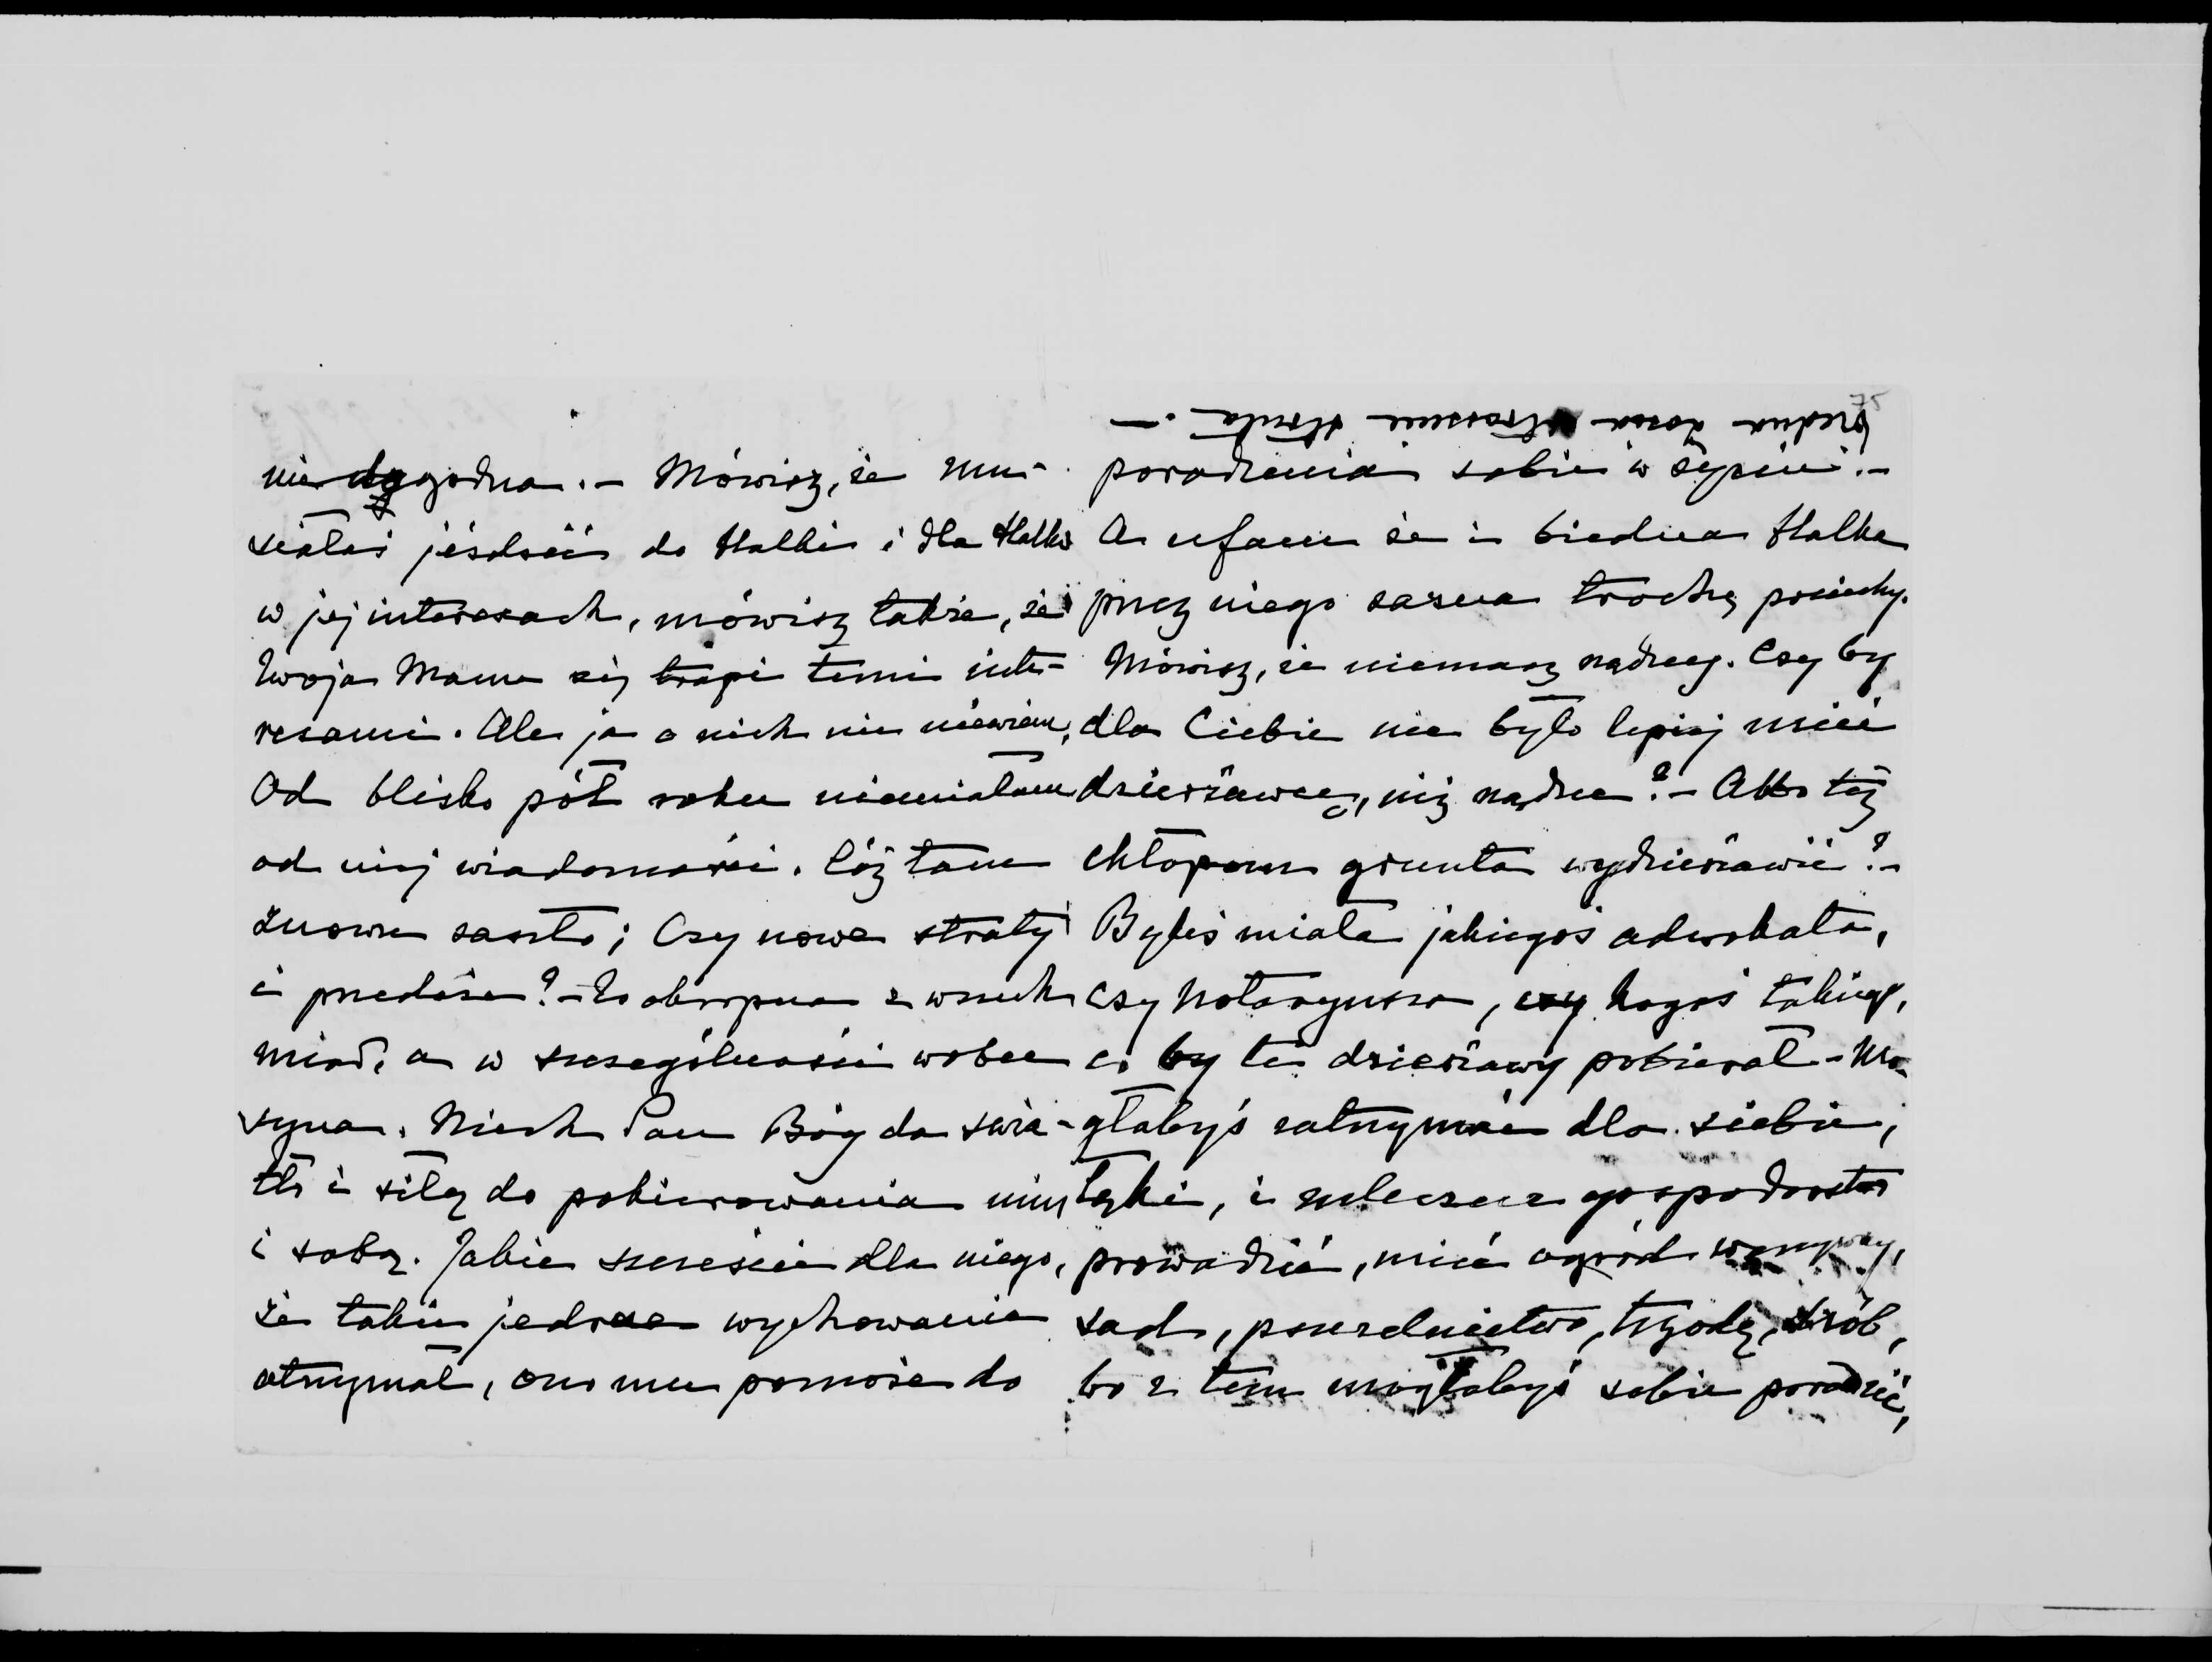 niedogodna. – Mówisz, że mu-
siałaś jeździć do Halki i dla Halki
w jej interesach, mówisz także, że
Twoja Mama się trapi temi inte-
resami. Ale ja o nich nie niewiem,
Od blisko pół roku niemiałam
od niej wiadomości. Cóż tam
znowu zaszło; Czy nowe straty
i przedsie? – To okropna z
miar, a w szczególności wobec
syna. Niech Pan Bóg da świa-
tło i siłę do pokierowania nim
i sobą. Jakie szczęście dla niego,
że takie jedrne wychowanie
otrzymał, ono mu pomoże do
biedna Zosia strasznie
poradzenia sobie w życiu. –
A ufam że i biedna Halka
przez niego zazna trochę pociechy.
Mówisz, że niemasz rządcy. Czy by
dla Ciebie nie było lepiej mieć
dzierżawcę, niż rządcę? – Albo też
chłopom grunta wydzierżawić? –
Byleś miała jakiegoś adwokata,
czy Notaryusza, czy kogoś takiego,
co by te dzierżawy pobierał – Mo-
głabyś zatrzymać dla siebie,
łąki, i mleczne gospodarstwo
prowadzić, mieć ogród warzywny,
sad, pszczelnictwo, trzodę, drób,
bo z tem mogłabyś sobie poradzić,